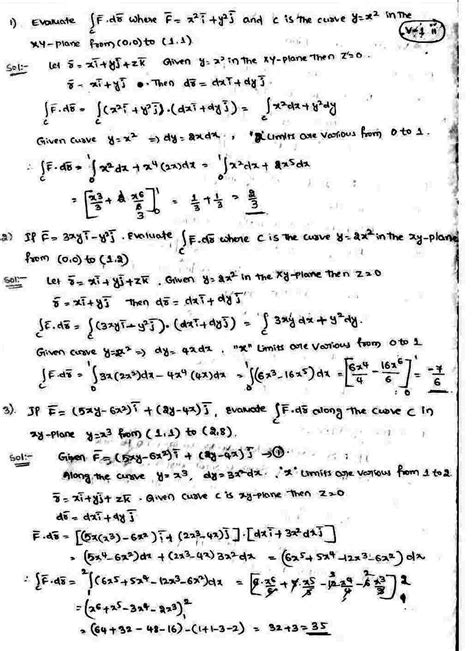 1) Evaluate ∫_C F̄·dr̄ where F̄ = x²ī + y²j̄ and c is the curve y=x² in the
V-1 ii
xy-plane from (0,0) to (1,1).
Sol:- Let r̄ = xī + yj̄ + zk̄ Given y=x² in the xy-plane then z=0.
r̄ = xī + yj̄ Then dr̄ = dxī + dyj̄
∫_C F̄·dr̄ = ∫_C (x²ī + y²j̄)·(dxī + dyj̄) = ∫_C x²dx + y²dy
Given curve y=x² ⇒ dy = 2xdx, "x" Limits are various from 0 to 1.
∴ ∫_C F̄·dr̄ = ∫₀¹ x²dx + x⁴(2x)dx = ∫₀¹ x²dx + 2x⁵dx
= [x³/3 + 2 x⁶/6]₀¹ = 1/3 + 1/3 = 2/3
2) If F̄ = 3xyī - y²j̄. Evaluate ∫_C F̄·dr̄ where C is the curve y=2x² in the xy-plane
from (0,0) to (1,2)
Sol:- Let r̄ = xī + yj̄ + zk̄, Given y=2x² in the xy-plane then z=0
r̄ = xī + yj̄ Then dr̄ = dxī + dyj̄
∫_C F̄·dr̄ = ∫_C (3xyī - y²j̄)·(dxī + dyj̄) = ∫_C 3xy dx + y²dy.
Given curve y=2x² ⇒ dy = 4xdx, "x" Limits are various from 0 to 1
∫_C F̄·dr̄ = ∫₀¹ 3x(2x²)dx - 4x⁴(4x)dx = ∫₀¹ (6x³ - 16x⁵)dx = [6x⁴/4 - 16x⁶/6]₀¹ = -7/6
3). If F̄ = (5xy - 6x²)ī + (2y - 4x)j̄, evaluate ∫_C F̄·dr̄ along the curve C in
xy-plane y=x³ from (1,1) to (2,8).
Sol:- Given F̄ = (5xy - 6x²)ī + (2y - 4x)j̄ → ①
Along the curve y=x³, dy = 3x²dx. "x" Limits are various from 1 to 2
r̄ = xī + yj̄ + zk̄. Given curve C is xy-plane then z=0
dr̄ = dxī + dyj̄
F̄·dr̄ = [(5x(x³) - 6x²)ī + (2x³ - 4x)j̄]·[dxī + 3x²dxj̄]
= (5x⁴ - 6x²)dx + (2x³ - 4x)3x²dx = (6x⁵ + 5x⁴ - 12x³ - 6x²)dx
∴ ∫_C F̄·dr̄ = ∫₁² (6x⁵ + 5x⁴ - 12x³ - 6x²)dx = [6·x⁶/6 + 5·x⁵/5 - 12 x⁴/4 - 6 x³/3]₁²
= (x⁶ + x⁵ - 3x⁴ - 2x³)₁²
= (64 + 32 - 48 - 16) - (1+1-3-2) = 32+3 = 35